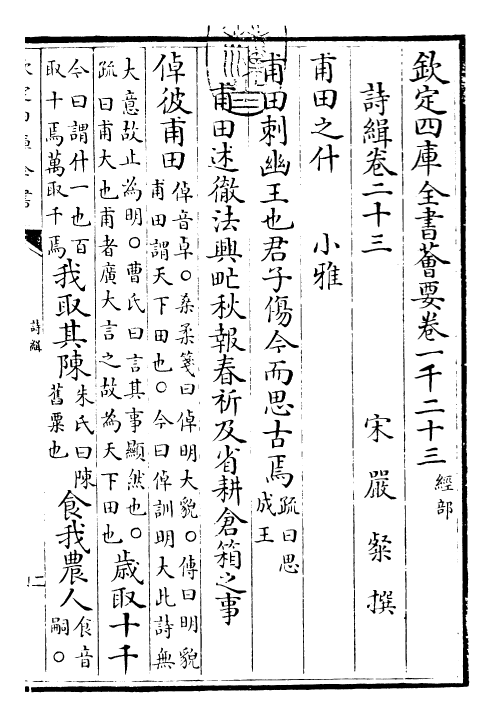 欽定四庫全書薈要卷一千二十三 經部
詩緝卷二十三 宋 嚴粲 撰
甫田之什 小雅
甫田刺幽王也君子傷今而思古焉 疏曰思成王
甫田述徹法興甿秋報春祈及省耕倉箱之事
倬彼甫田 倬音卓○桑柔箋曰倬明大貌○傳曰明貌 甫田謂天下田也○今曰倬訓明大此詩無
大意故止為明○曹氏曰言其事顯然也○ 疏曰甫大也甫者廣大言之故為天下田也 歲取十千
今曰謂什一也百 取十焉萬取千焉 我取其陳 朱氏曰陳 舊粟也 食我農人 食音 嗣○
詩緝